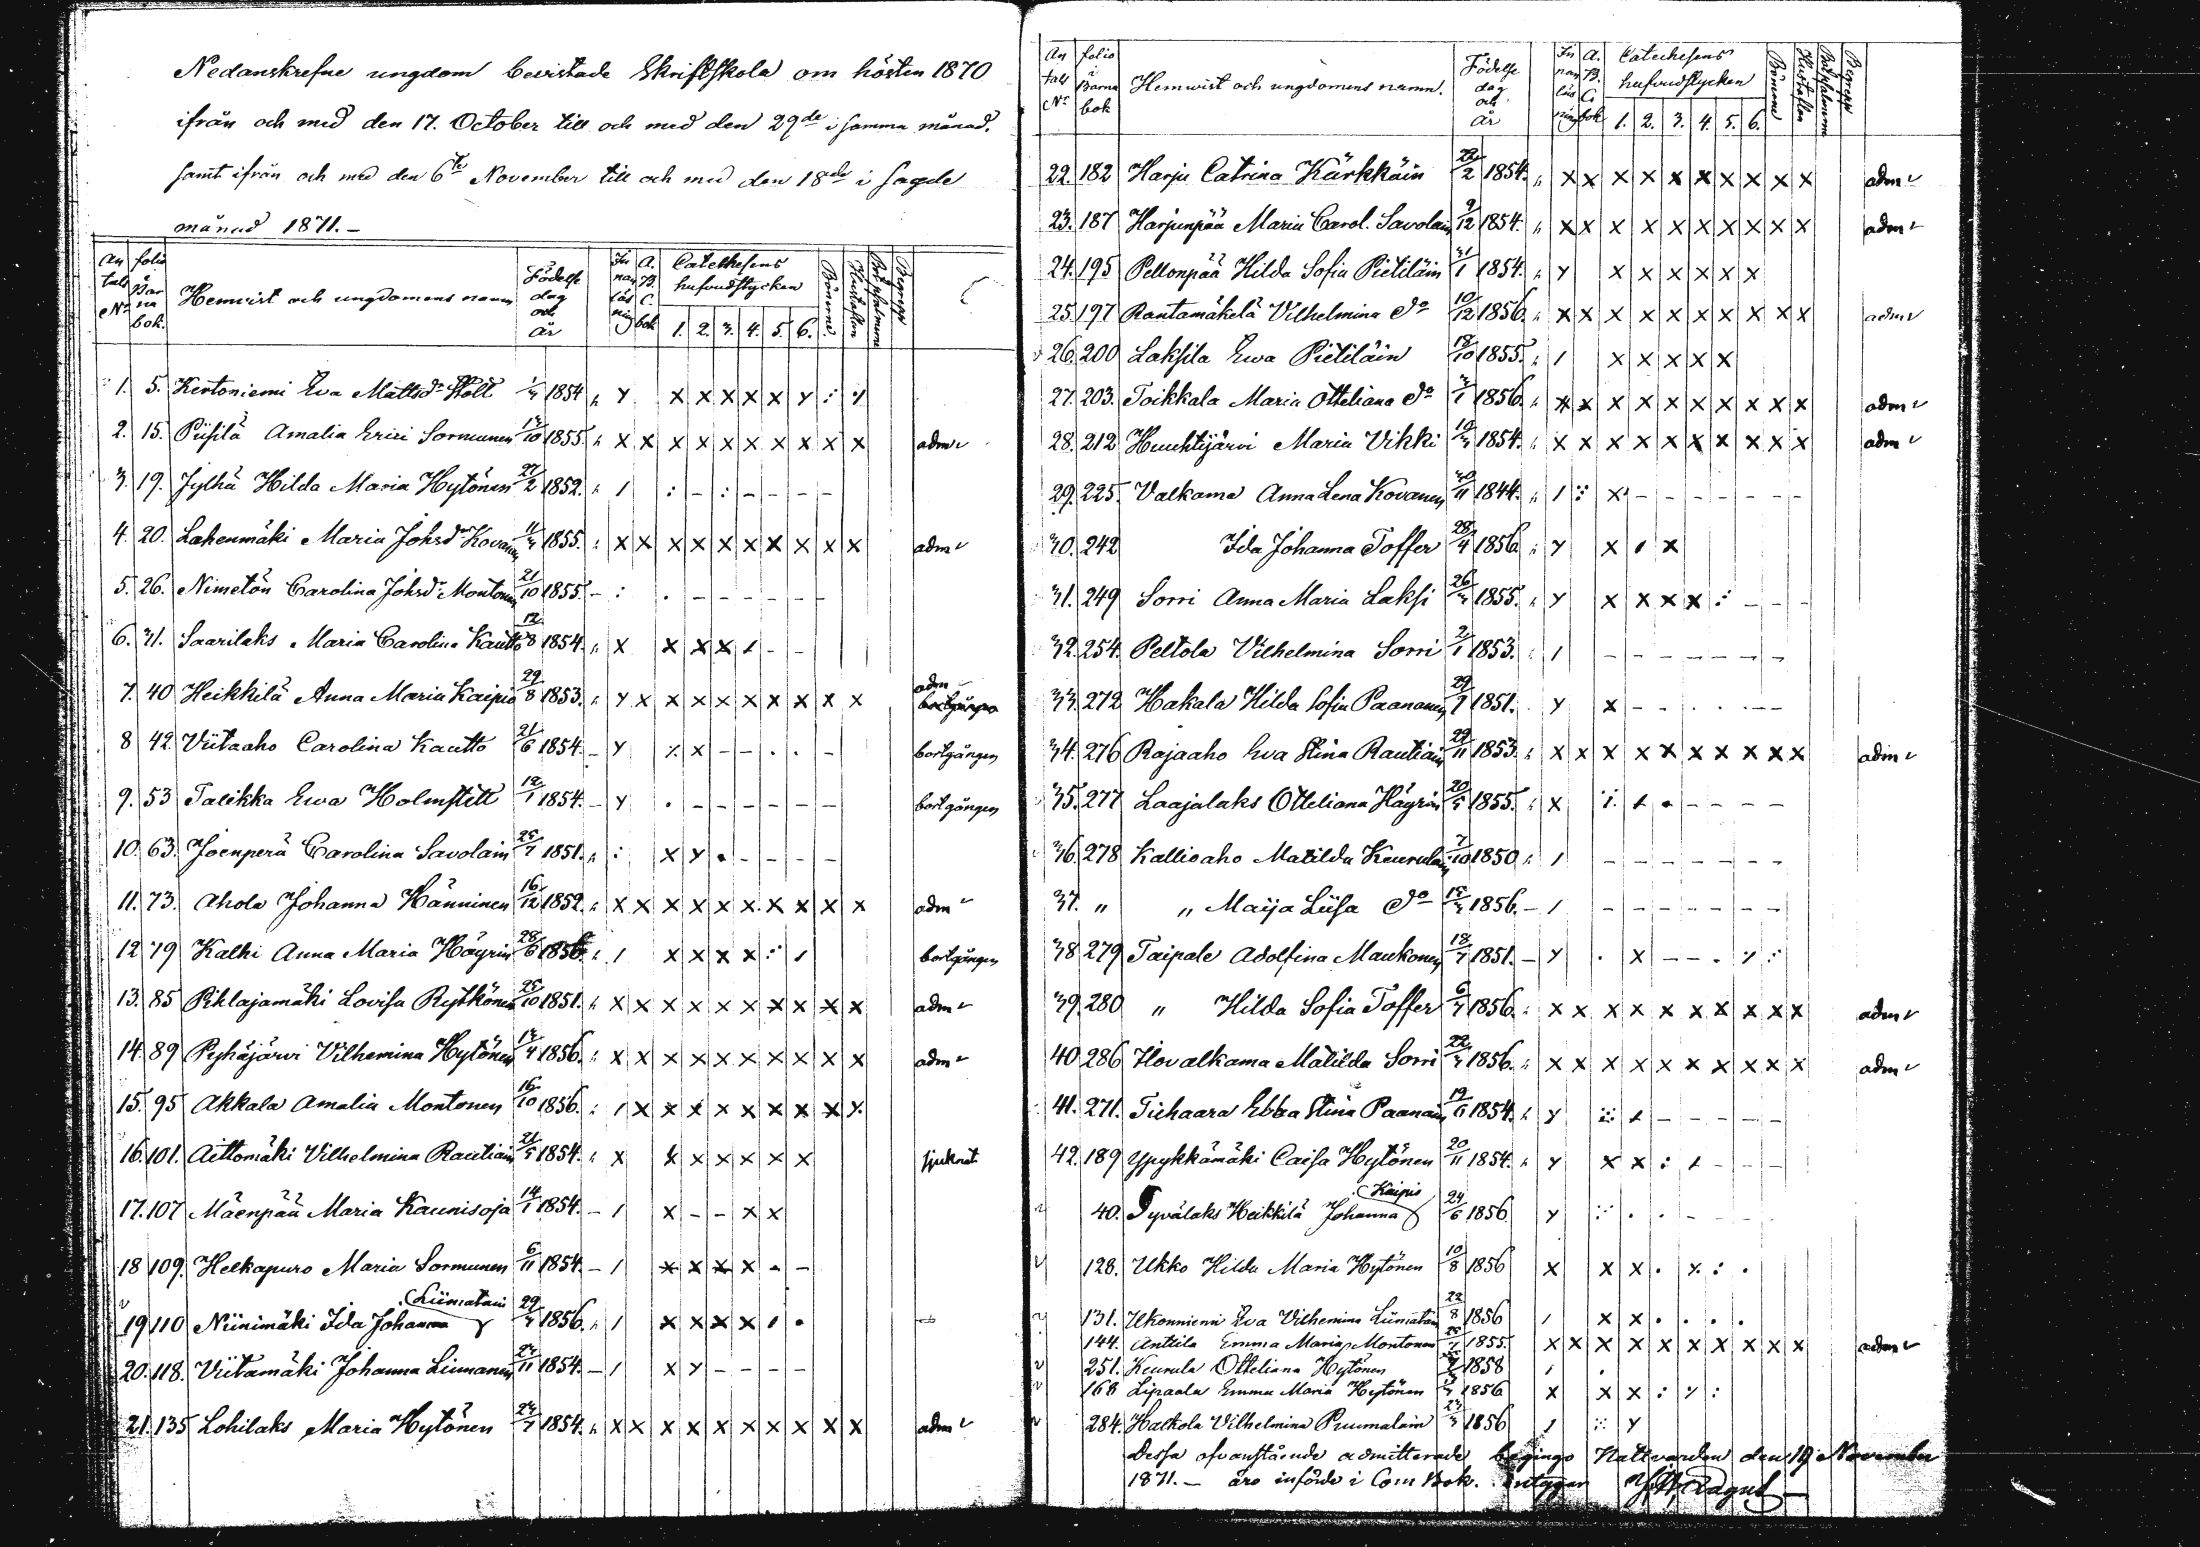 Nedanskrefne ungdom bevistade Skriftskola om hösten 1870
ifrån och med den 17. October till och med den 29de i samma månad.
samt ifrån och med den 6te November till och med den 18de i sagde
månad 1871.-
An tals No folio i Bar na bok. Hemvist och ungdomens namn Födelse dag och år In nan läs ning A. B. C. bok Catekhesens hufvudstycken 1. 2. 3. 4. 5. 6. Bönerna Hustaflan Botpsalmerna Begrepp
1. 5. Kertoniemi Eva Mattsdr Stolt 1854 x x x x x y : y
2. 15. Piisilä Amalia Erici Sormunen 13/10 1855. x x x x x x x x x x adm
3. 19. Jylhä Hilda Maria Hytönen 27/2 1852. 1 : - : - - - - -
4. 20. Lahenmäki Maria Johsdr Kovanen 1855. x x x x x x x x x x adm
5. 26. Nimetön Carolina Johsdr Montonen 21/10 1855. - : . - - - - - -
6. 31. Saarilaks Maria Carolina Kautto 12/8 1854. x x x x - -
7. 40 Heikkilä Anna Maria Kaipio 29/8 1853. y x x x x x x x x x adm bortgången
8 42. Viitaaho Carolina Kautto 21/6 1854. - y x - - . . - bortgången
9. 53 Talikka Ewa Holmstett 12/1 1854. - y . - - - - - - bortgången
10. 63. Joenperä Carolina Savolain 25/7 1851. : x y . - - - -
11. 73. Ahola Johanna Hänninen 16/12 1852. x x x x x x x x x x adm
12 79 Kalhi Anna Maria Häyrin 28/6 1856. 1 x x x x : bortgången
13. 85 Pihlajamäki Lovisa Rytkönen 25/10 1851. x x x x x x x x x x adm
14. 89 Pyhäjärvi Vilhemina Hytönen 13/4 1856. x x x x x x x x x x adm
15. 95 Akkala Amalia Montonen 16/10 1856. 1 x x x x x x x x
16. 101. Aittomäki Vilhelmina Rautiain 21/5 1854. x x x x x x x sjuknat
17. 107 Mäenpää Maria Kaunisoja 14/1 1854. - 1 x - - x x
18 109. Helkapuro Maria Sormunen 6/11 1854. - 1 x x x x - -
Liimatain
19 110 Niinimäki Ida Johanna 1856. 1 x x x x
20. 118. Viitamäki Johanna Liimanen 23/11 1854. - 1 x y - - - -
21. 135 Lohilaks Maria Hytönen 1854. x x x x x x x x x x adm
An tals No folio i Barna bok Hemvist och ungdomens namn. Födelse dag och år In nan läs ning A. B. C. bok Catechesens hufvudstycken 1. 2. 3. 4. 5. 6. Bönerna Hustaflan Botpsalmerna Begrepp
22. 182 Harju Catrina Kärkkäin 22/2 1854. x x x x x x x x x x adm
23. 187 Harjunpää Maria Carol. Savolain 9/12 1854. x x x x x x x x x x adm
24. 195 Pellonpää Hilda Sofia Pietiläin 31/1 1854. y x x x x x x
25. 197 Rantamäkelä Vilhelmina do 10/12 1856. x x x x x x x x x x adm
26. 200 Laksila Ewa Pietiläin 18/10 1855. 1 x x x x x
27. 203. Toikkala Maria Otteliana do 1856. x x x x x x x x x x adm
28. 212 Huuhtijärvi Maria Vikki 1854. x x x x x x x x x x adm
29. 225. Valkama Anna Lena Kovanen 30/11 1844. 1 : x - - - - - - -
30. 242 Ida Johanna Toffer 28/4 1856. y x x
31. 249 Sorri Anna Maria Laksi 1855. y x x x x : - - -
32. 254. Peltola Vilhelmina Sorri 2/1 1853. 1 - - - - - - -
33. 272 Hakala Hilda Sofia Paananen 29/7 1851. y x - - . . - -
34. 276 Rajaaho Eva Stina Rautiain 29/11 1853. x x x x x x x x x x adm
35. 277 Laajalaks Otteliana Häyrin 20/5 1855. x - - - -
36. 278 Kallioaho Matilda Keurulain 7/10 1850 1 - - - - - - -
37. " " Maija Liisa do 1856. - 1 - - - - - - -
38 279 Taipale Adolfina Maukonen 1851. - y . x - - .
39. 280 " Hilda Sofia Toffer 1856. x x x x x x x x x x adm
40 286 Hovalkama Matilda Sorri 1856. x x x x x x x x x x adm
41. 271. Tiehaara Ebba Stina Paanain 19/6 1854. y - - - - -
42. 189 Ypykkämäki Caisa Hytönen 20/11 1854. y x x : - - -
Kaipio
40. Tyvälaks Heikkilä Johanna 24/6 1856 y
128. Ukko Hilda Maria Hytönen 10/8 1856 x x x . x : .
131. Ukonniemi Eva Vilhemina Liimatain 22/8 1856 x x . . . .
144. Anttila Emma Maria Montonen 1855. x x x x x x x x x x adm
251. Keurula Otteliana Hytönen 1858
168 Lipaala Emma Maria Hytönen 1856 x x x : y :
284. Halkola Vilhelmina Puumalain 1856 y
Dessa ofvanstående admitterade begingo Nattvarden den 19 November
1871.- äro införde i Com Bok. intygar